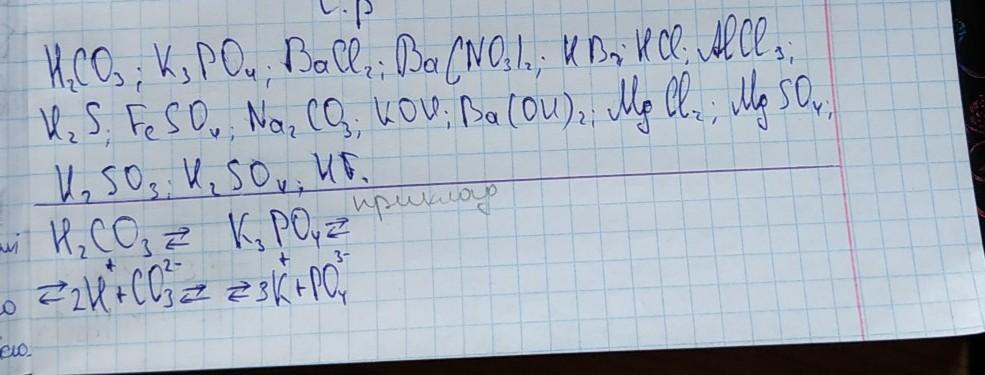 с.р
H₂CO₃; K₃PO₄; BaCl₂; Ba(NO₃)₂; HBr; HCl; AlCl₃;
H₂S; FeSO₄; Na₂CO₃; KOH; Ba(OH)₂; MgCl₂; MgSO₄;
H₂SO₃; H₂SO₄; HF.
приклад
H₂CO₃ ⇄ K₃PO₄ ⇄
⇄ 2H⁺ + CO₃²⁻ ⇄ ⇄ 3K⁺ + PO₄³⁻